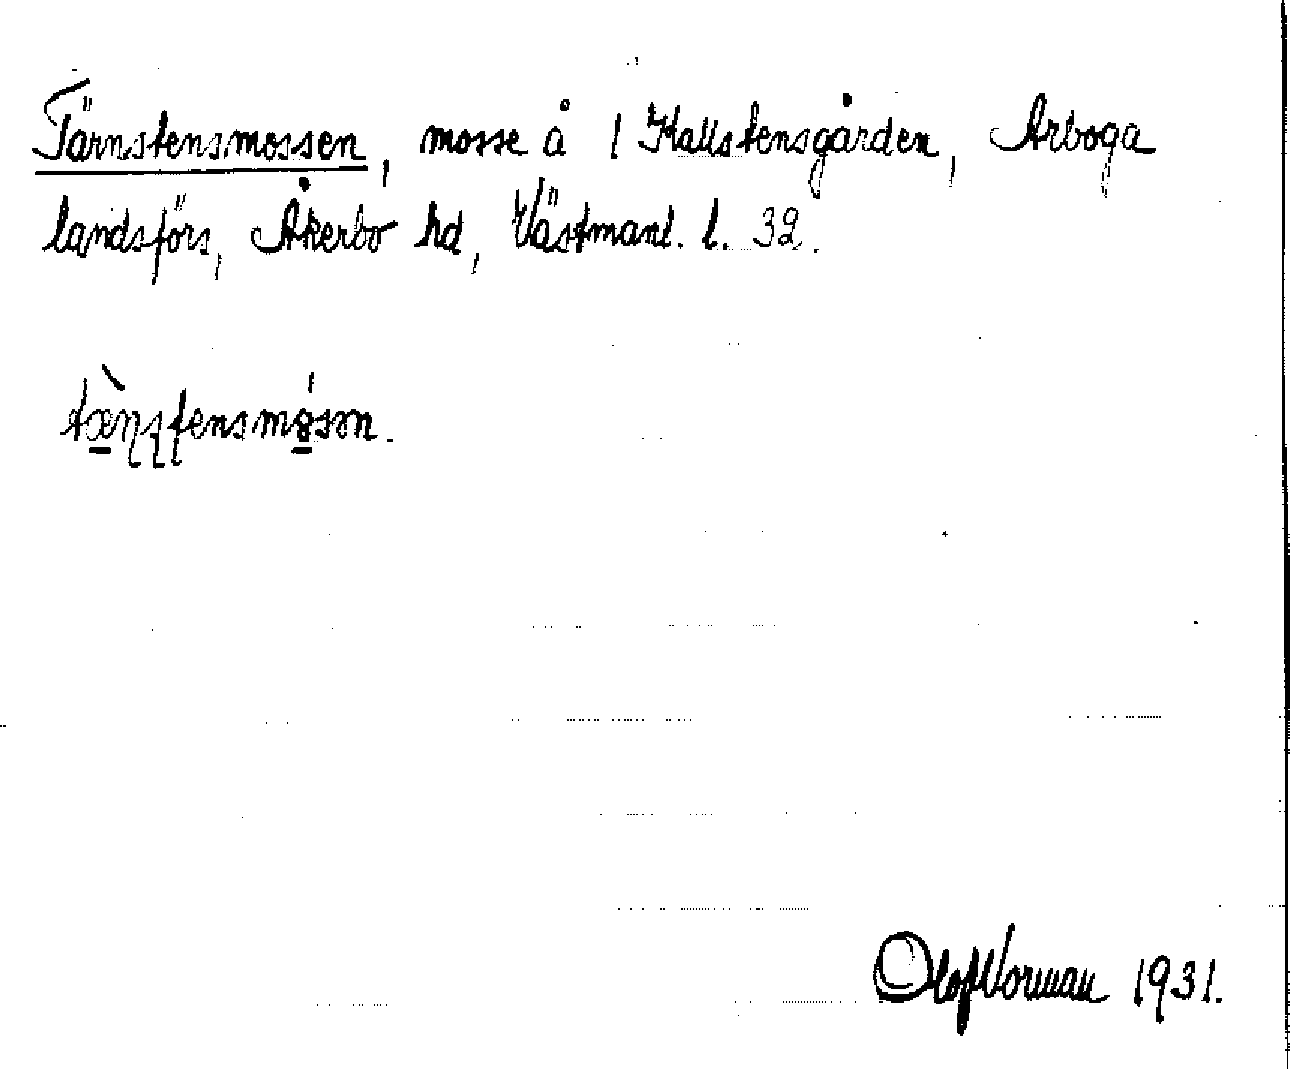 Tärnstensmossen, mosse å 1 Kallstensgården, Arboga
landsförs, Åkerbo hd, Västmanl. l. 32.
Olof Norman 1931.